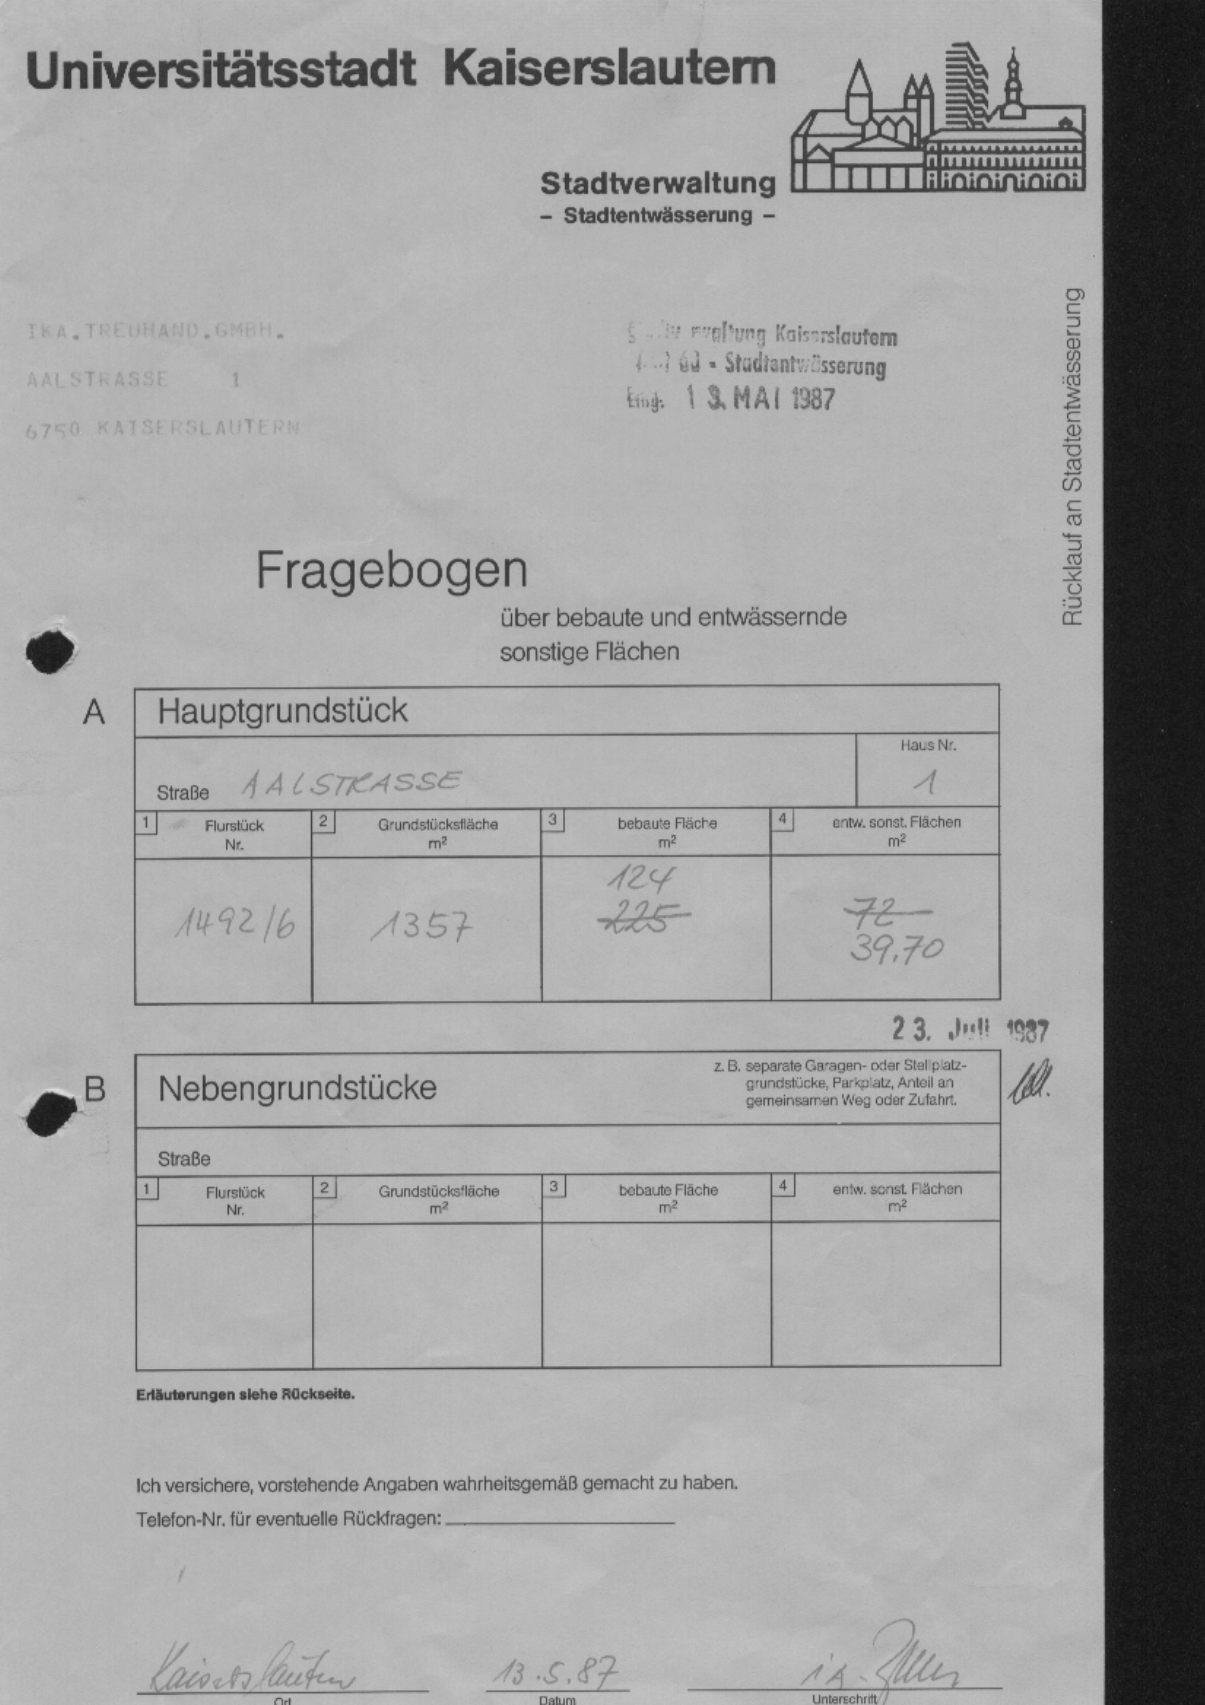 Universitätsstadt Kaiserslautern
Stadtverwaltung
– Stadtentwässerung –
IKA.TREUHAND.GMBH.
AALSTRASSE 1
6750 KAISERSLAUTERN
Kaiserslautern
- Stadtentwässerung
Eing. 13. MAI 1987
Rücklauf an Stadtentwässerung
Fragebogen
über bebaute und entwässernde
sonstige Flächen
A Hauptgrundstück
Haus Nr.
Straße AALSTRASSE 1
1 Flurstück Nr. 2 Grundstücksfläche m² 3 bebaute Fläche m² 4 entw. sonst. Flächen m²
124
1492/6 1357 225 72
39,70
23. Juli 1987
B Nebengrundstücke
z. B. separate Garagen- oder Stellplatz-
grundstücke, Parkplatz, Anteil an
gemeinsamen Weg oder Zufahrt.
Straße
1 Flurstück Nr. 2 Grundstücksfläche m² 3 bebaute Fläche m² 4 entw. sonst. Flächen m²
Erläuterungen siehe Rückseite.
Ich versichere, vorstehende Angaben wahrheitsgemäß gemacht zu haben.
Telefon-Nr. für eventuelle Rückfragen:
Kaiserslautern 13.5.87 i.A.
Ort Datum Unterschrift